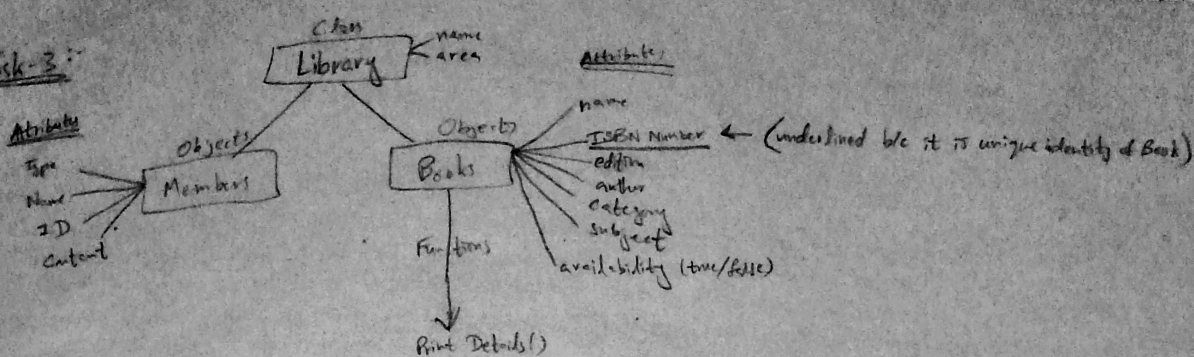 sk-3 :-
Class
Library
name
area
Attributes
Objects
Members
Type
Name
ID
Objects
Books
Attributes
name
ISBN Number ← (underlined b/c it is unique identity of Book)
edition
author
category
subject
availability (true/false)
Functions
Print Details()